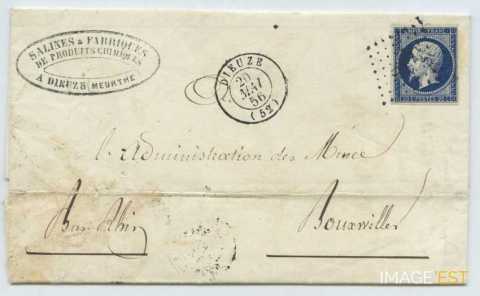 SALINES & FABRIQUES
DE PRODUITS CHIMIQUES
A DIEUZE MEURTHE
DIEUZE
20
MAI
56
(52)
EMPIRE FRANC
20 C POSTES 20 C
l'Administration des Mines
Bas-Rhin
Bouxwiller
IMAGE'EST